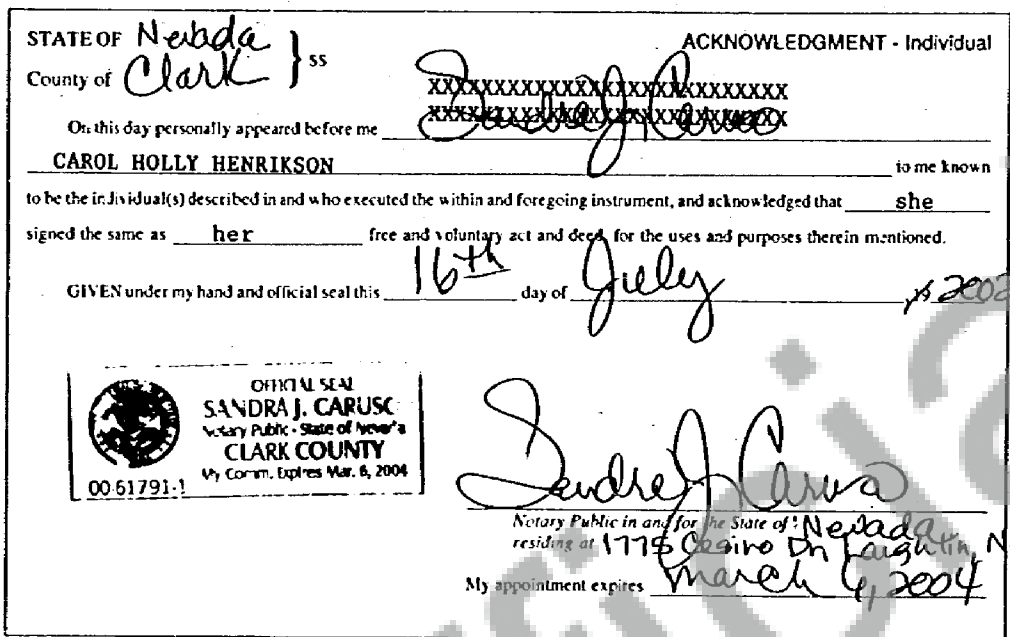 STATE OF Nevada } ss
ACKNOWLEDGMENT - Individual
County of Clark
XXXXXXXXXXXXXXXXXXXXXXXXXXXX
XXXXXXXXXXXXXXXXXXXXXXXXXXXX
On this day personally appeared before me Sandra J. Caruso
CAROL HOLLY HENRIKSON to me known
to be the individual(s) described in and who executed the within and foregoing instrument, and acknowledged that she
signed the same as her free and voluntary act and deed, for the uses and purposes therein mentioned.
GIVEN under my hand and official seal this 16th day of July 2002
OFFICIAL SEAL
SANDRA J. CARUSO
Notary Public - State of Nevada
CLARK COUNTY
My Comm. Expires Mar. 6, 2004
00-61791-1
Sandra J Caruso
Notary Public in and for the State of Nevada
residing at 1775 Casino Dr Laughlin, N
My appointment expires March 6, 2004